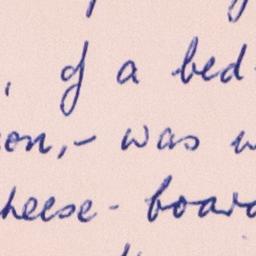 , of a bed-
on,- was
heese-board